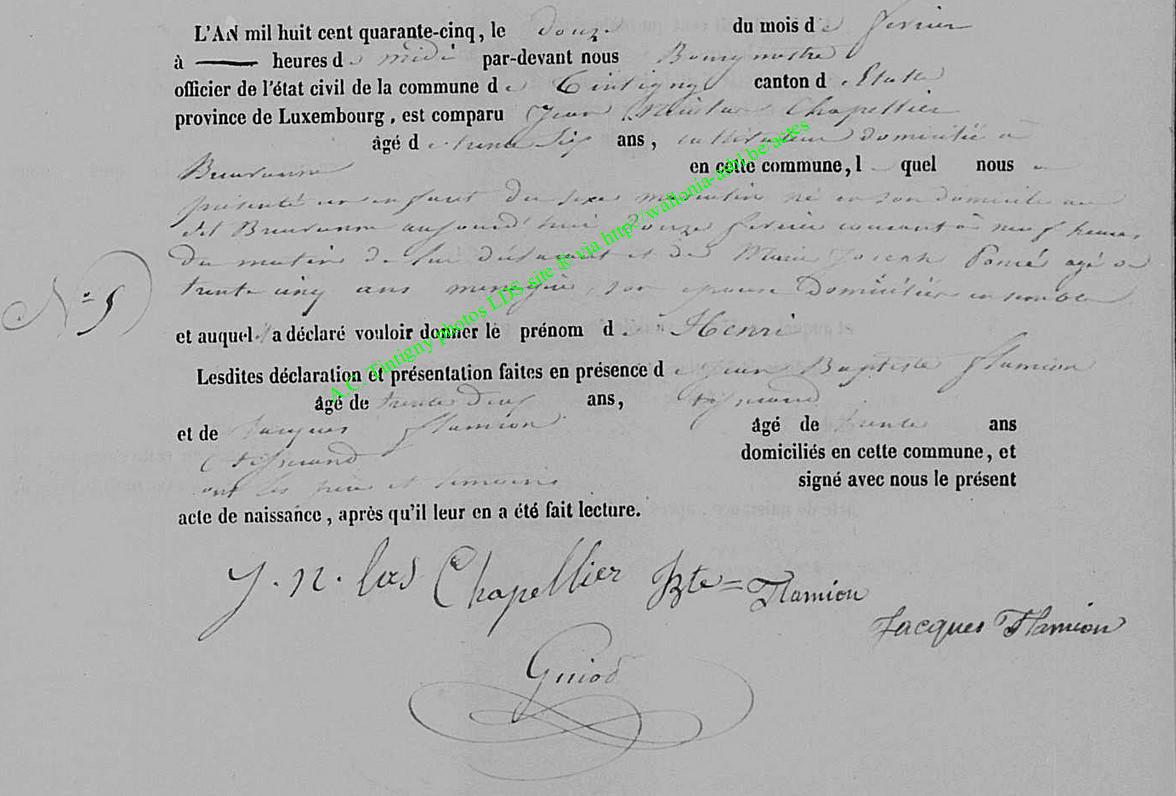 L'AN mil huit cent quarante-cinq, le douze du mois de février
à heures de midi par-devant nous Bourgmestre
officier de l'état civil de la commune de Tintigny canton d'Etalle
province de Luxembourg, est comparu Jean Nicolas Chapellier
âgé de trente six ans, cultivateur domicilié à
Breuvanne en cette commune, l quel nous a
présenté un enfant du sexe masculin né en son domicile au
dit Breuvanne aujourd'hui douze février courant à neuf heures
du matin de lui déclarant et de Marie Joseph agé de
trente cinq ans menagère, son epouse domiciliés ensemble
N° 5
et auquel il a déclaré vouloir donner le prénom d Henri
Lesdites déclaration et présentation faites en présence de Jean Baptiste Flamion
âgé de trente deux ans, tisserand
et de Jacques Flamion âgé de trente ans
tisserand domiciliés en cette commune, et
ont les père et temoins signé avec nous le présent
acte de naissance, après qu'il leur en a été fait lecture.
J. n. las Chapellier Bte= Flamion
Jacques Flamion
Guiod
A.C. Tintigny photos LDS site ® via http://wallonia-asbl.be/actes